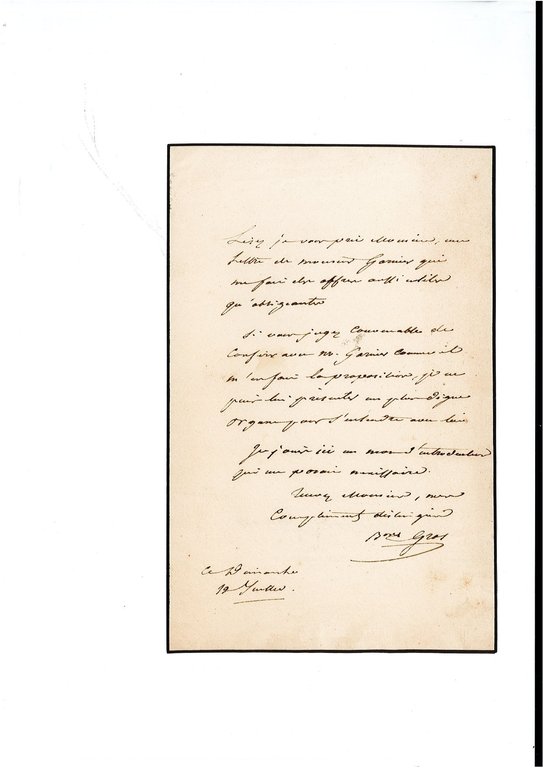 Lisez je vous prie Monsieur, une
lettre de monsieur Garnier qui
me fait des offres aussi utiles
qu'obligeantes
Si vous jugez convenable de
conferer avec Mr. Garnier comme il
m'en fait la proposition, je ne
puis lui présenter un plus digne
organe pour s'entendre avec lui
Je joins ici un mot d'introduction
qui me parait nécessaire.
Recevez Monsieur, mes
Compliments distingués
Bonne Gros
Ce Dimanche
19 Juillet.